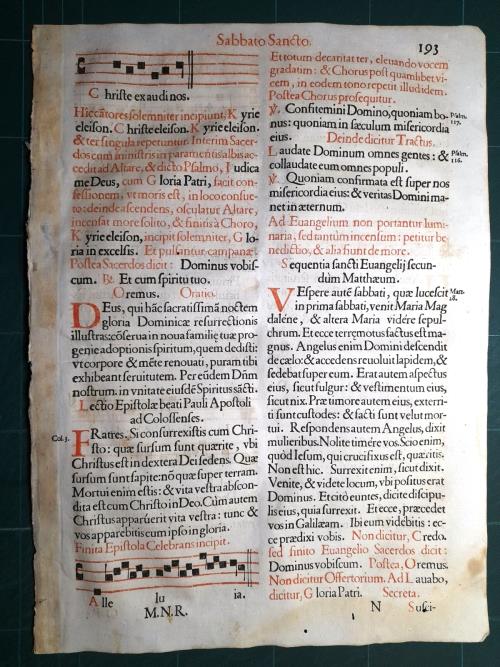 Sabbato Sancto.
193
C hriste exaudi nos.
Hic cãtores solemniter incipiunt, K yrie
eleison. C hriste eleison. K yrie eleison.
& ter singula repetuntur. Interim Sacer
dos cum ministris in paramentis albis ac-
cedit ad Altare, & dicto Psalmo, I udica
me Deus, cum G loria Patri, facit con-
fessionem, vt moris est, in loco consue-
to: deinde ascendens, osculatur Altare,
incensat more solito, & finitis à Choro,
K yrie eleison, incipit solemniter, G lo-
ria in excelsis. Et pulsantur campanæ.
Postea Sacerdos dicit: Dominus vobis-
cum. ℞. Et cum spiritu tuo.
O remus. Oratio.
DEus, qui hãc sacratissimã noctem
gloria Dominicæ resurrectionis
illustras: cõserua in noua familię tuæ pro-
genie adoptionis spiritum, quem dedisti:
vt corpore & mẽte renouati, puram tibi
exhibeant seruitutem. Per eũdem Dñm
nostrum. in vnitate eiusdẽ Spiritus sãcti.
L ectio Epistolæ beati Pauli Apostoli
ad Colossenses.
Col. 3.
FRatres. Si consurrexistis cum Chri-
sto: quæ sursum sunt quærite, vbi
Christus est in dextera Dei sedens. Quæ
sursum sunt sapite: nõ quæ super terram.
Mortui enim estis: & vita vestra abscon-
dita est cum Christo in Deo. Cùm autem
Christus apparúerit vita vestra: tunc &
vos apparebitis cum ipso in gloria.
Finita Epistola Celebrans incipit.
A lle lu ia.
M.N.R.
Et totum decantat ter, eleuando vocem
gradatim: & Chorus post quamlibet vi-
cem, in eodem tono repetit illud idem.
Postea Chorus prosequitur.
℣. Confitemini Domino, quoniam bo-
nus: quoniam in sæculum misericordia
eius. Deinde dicitur Tractus.
Psalm. 117.
L audate Dominum omnes gentes: &
collaudate eum omnes populi.
Psalm. 116.
℣. Quoniam confirmata est super nos
misericordia eius: & veritas Domini ma-
net in æternum.
Ad Euangelium non portantur lumi-
naria, sed tantùm incensum: petitur be-
nedictio, & alia fiunt de more.
S equentia sancti Euangelij secun-
dùm Matthæum.
VEspere autẽ sabbati, quæ lucescit
in prima sabbati, venit Maria Mag
Matt. 28.
daléne, & altera Maria vidére sepul-
chrum. Et ecce terręmotus factus est ma-
gnus. Angelus enim Domini descendit
de cælo: & accedens reuoluit lapidem, &
sedebat super eum. Erat autem aspectus
eius, sicut fulgur: & vestimentum eius,
sicut nix. Præ timore autem eius, exterri-
ti sunt custodes: & facti sunt velut mor-
tui. Respondens autem Angelus, dixit
mulieribus. Nolite timére vos. Scio enim,
quòd Iesum, qui crucifixus est, quæritis.
Non est hic. Surrexit enim, sicut dixit.
Venite, & videte locum, vbi positus erat
Dominus. Et citò euntes, dicite discipu-
lis eius, quia surrexit. Et ecce, præcedet
vos in Galilæam. Ibi eum videbitis: ec-
ce prædixi vobis. Non dicitur, C redo.
sed finito Euangelio Sacerdos dicit:
Dominus vobiscum. Postea, O remus.
Non dicitur Offertorium. Ad L auabo,
dicitur, G loria Patri. Secreta.
N Susci-